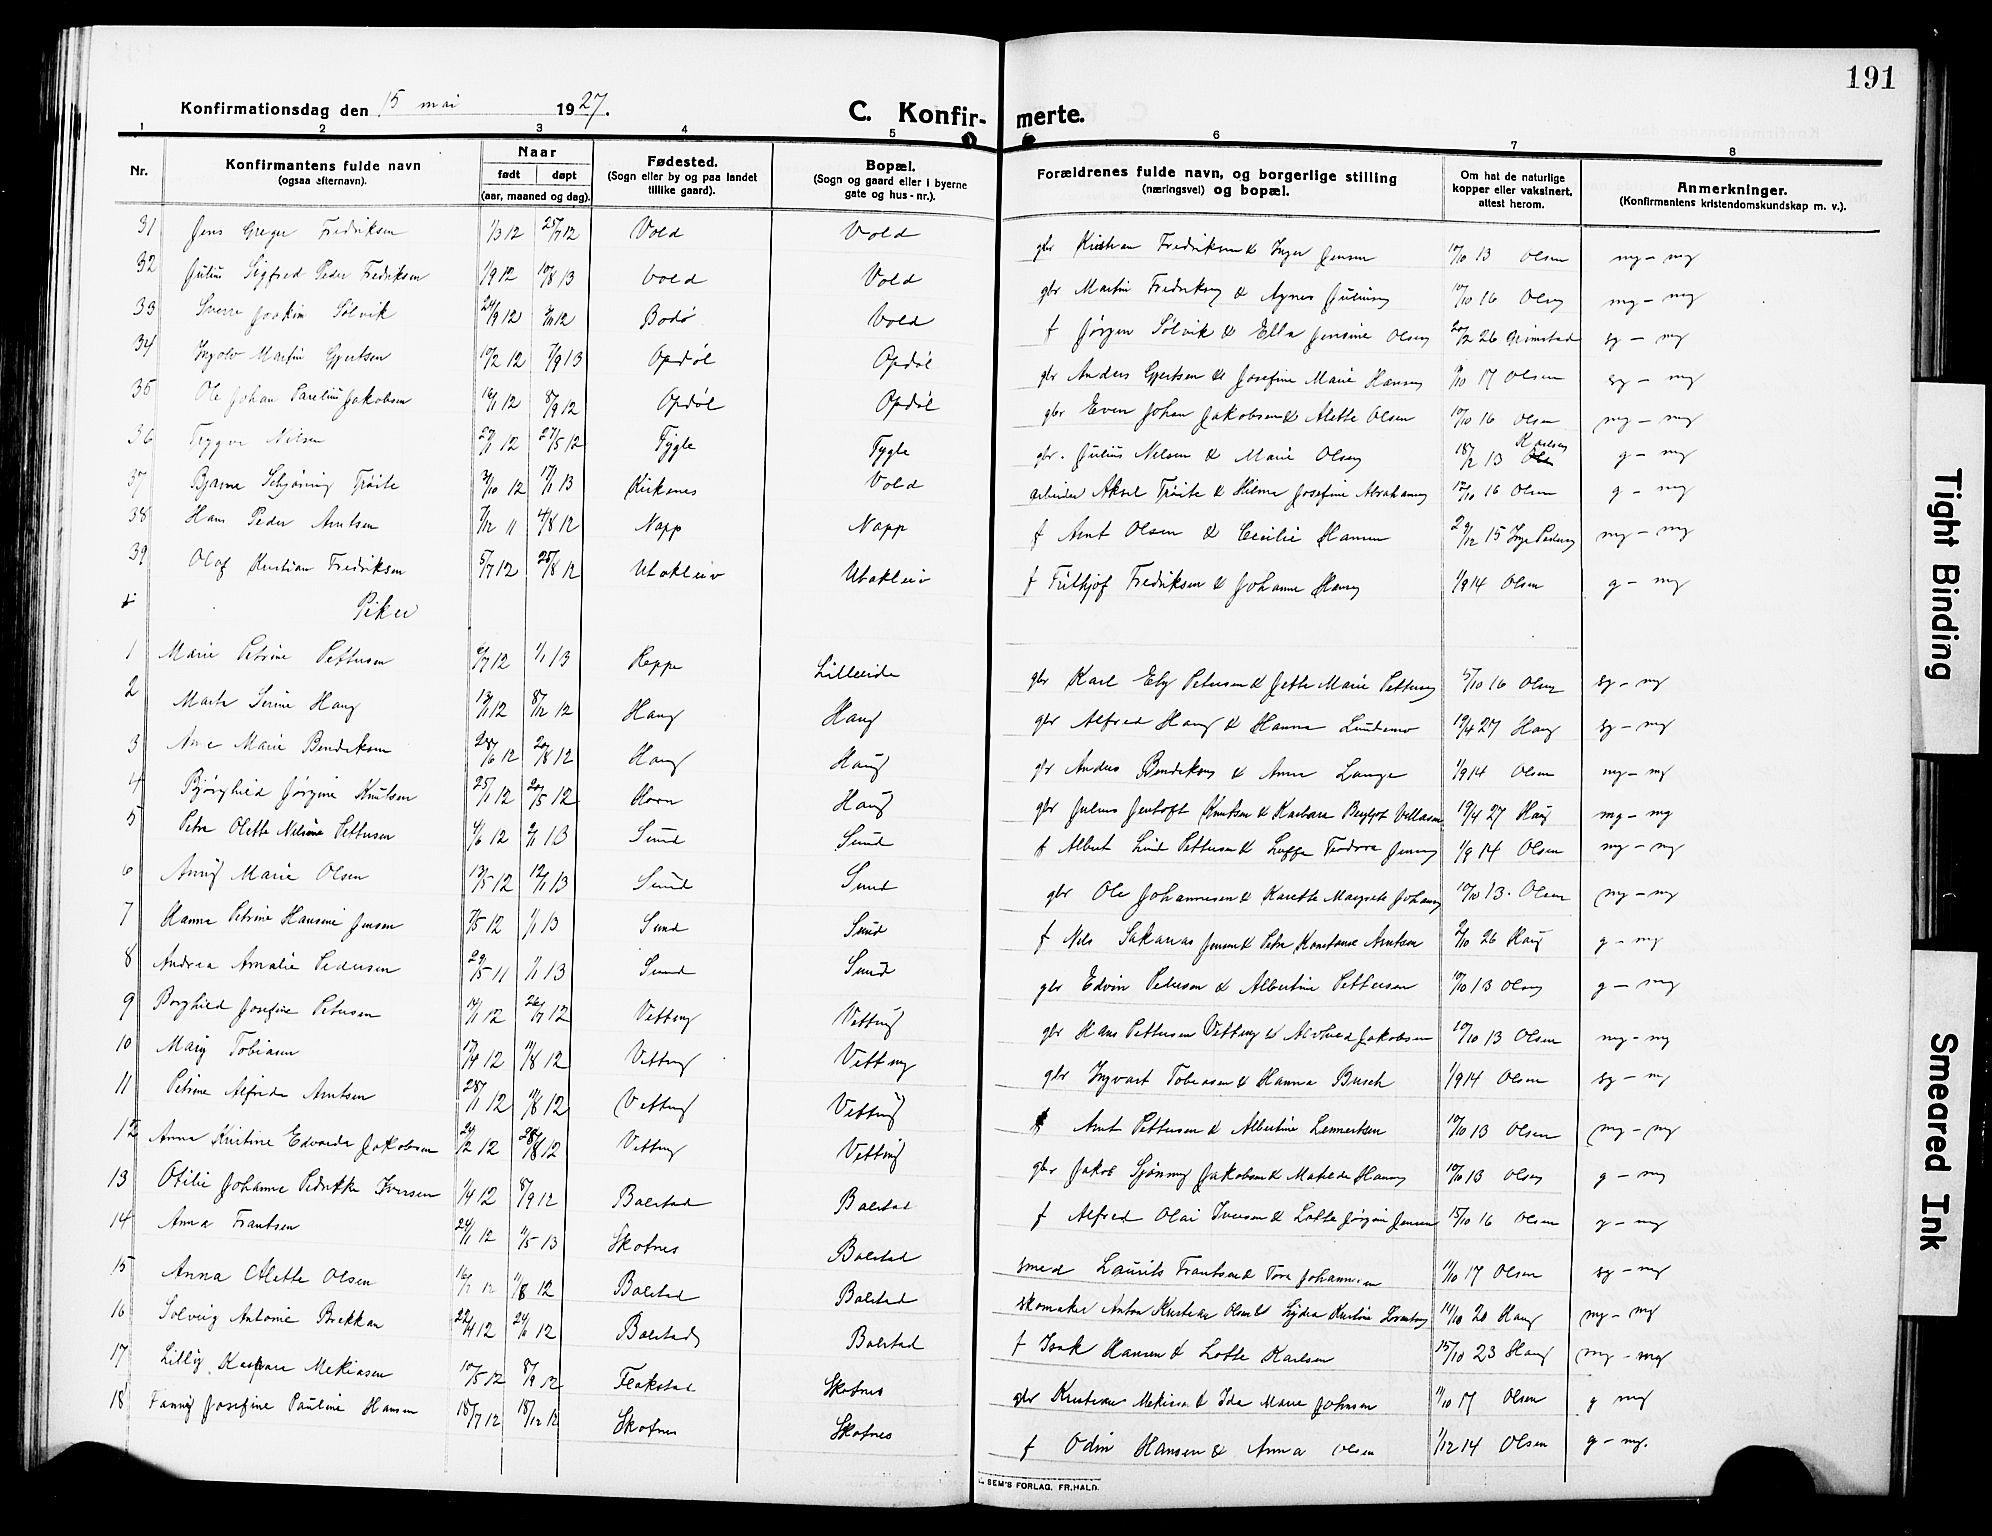 191
Konfirmationsdag den 15 mai 1927.
C. Konfir- merte.
1 2 3 4 5 6 7 8
Nr.
Konfirmantens fulde navn
(ogsaa efternavn).
Naar
født døpt
(aar, maaned og dag).
Fødested.
(Sogn eller by og paa landet
tillike gaard).
Bopæl.
(Sogn og gaard eller i byerne
gate og hus-nr.).
Forældrenes fulde navn, og borgerlige stilling
(næringsvei) og bopæl.
Om hat de naturlige
kopper eller vaksinert,
attest herom.
Anmerkninger.
(Konfirmantens kristendomskundskap m. v.).
31 Jens Greger Fredriksen 1/3 12 25/7 12 Vold Vold gbr Kristian Fredriksen & Inger Jensen 10/10 13 Olsen mg - mg
32 Julius Sigfred Peder Fredriksen 1/9 12 10/8 13 Vold Vold gbr Martin Fredriksen & Agnes Juliussen 10/10 16 Olsen mg - mg
33 Sverre Joakim Sølvik 24/9 12 12 Bodø Vold f Jørgen Sølvik & Ella Jensine Olsen 20/2 26 Grimstad sg - mg
34 Ingolv Martin Gjertsen 10/2 12 7/9 13 Opdøl Opdøl gbr Anders Gjertsen & Josefine Marie Hansen 17 Olsen sg - mg
35 Ole Johan Parelius Jakobsen 16/1 12 8/9 12 Opdøl Opdøl gbr Even Johan Jakobsen & Alette Olsen 10/10 16 Olsen mg - mg
36 Trygve Nilsen 27/1 12 27/5 12 Tygle Tygle gbr. Julius Nilsen & Marie Olsen 18/2 13 Karlsen g - mg
37 Bjarne Schjøning Trøite 3/10 12 17/1 13 Kirkenes Vold arbeider Aksel Trøite & Hilma Josefine Abrahamsen 12/10 16 Olsen g - mg
38 Hans Peder Arntsen 7/12 11 4/8 12 Napp Napp f Arnt Olsen & Cecilie Hansen 29/12 15 Inga Pedersen mg - mg
39 Olaf Kristian Fredriksen 5/7 12 25/8 12 Utakleiv Utakleiv f Frithjof Fredriksen & Johanne Hansen 1/9 14 Olsen g - mg
Piker
1 Marie Petrine Pettersen 6/7 12 1/1 13 Reppe Lilleeide gbr Karl Eby Petersen & Jette Marie Pettersen 5/10 16 Olsen sg - mg
2 Marta Serine Haug 13/11 12 8/12 12 Haug Haug gbr Alfred Haug & Hanna Lundemo 19/4 27 Haug sg - mg
3 Ane Marie Bendiksen 28/6 12 20/8 12 Haug Haug gbr Anders Bendiksen & Anna Lange 1/9 14 Olsen mg - mg
4 Bjørghild Jørgine Knutsen 25/1 12 20/5 12 Horn Haug gbr Julius Jentoft Knutsen & Karbara Bergljot Villassen 19/4 27 Haug mg - mg
5 Petra Olette Nelsine Pettersen 4/6 12 2/1 13 Sund Sund f Albert Lind Pettersen & Luffa Teodora Jensen 1/9 14 Olsen mg - mg
6 Anny Marie Olsen 13/5 12 12/1 13 Sund Sund gbr Ole Johannesen & Karette Margrete Johansen 10/10 13. Olsen mg - mg
7 Hanna Petrine Hansine Jensen 7/5 12 1/1 13 Sund Sund f Nils Sakarias Jensen & Petra Konstanse Arntsen 2/10 26 Haug g - mg
8 Andrea Amalie Pedersen 29/5 11 1/1 13 Sund Sund gbr Edvin Pedersen & Albertine Pettersen 10/10 13 Olsen g - mg
9 Borghild Josefine Petersen 14/1 12 26/7 12 Vetting Vetting gbr Hans Pettersen Vetting & Alvhild Jakobsen 10/10 13 Olsen mg - mg
10 Mary Tobiasen 17/4 12 11/8 12 Vetting Vetting gbr Ingvart Tobiasen & Hanna Busch 1/9 14 Olsen sg - mg
11 Petrine Alfrida Arntsen 28/11 12 11/8 12 Vetting Vetting f Arnt Pettersen & Albertine Lennertsen 10/10 13 Olsen mg - mg
12 Anna Kristine Edvarda Jakobsen 24/2 12 28/8 12 Vetting Vetting gbr Jakob Sjønning Jakobsen & Matilde Hansen 10/10 13 Olsen g - mg
13 Otilie Johanne Pedrikke Iversen 1/4 12 8/9 12 Balstad Balstad f Alfred Olai Iversen & Lotte Jørgine Jensen 15/10 16 Olsen g - mg
14 Anna Frantsen 24/1 12 4/5 13 Skotnes Balstad smed Laurits Frantsen & Tora Johannesen 11/10 17 Olsen sg - mg
15 Anna Alette Olsen 16/2 12 11/8 12 Balstad Balstad skomaker Anton Kristian Olsen & Lydia Kristine 14/10 20 Haug mg - mg
16 Solveig Antonie Brekkan 22/4 12 24/6 12 Balstad Balstad f Isak Hansen & Lotte Karlsen 15/10 23 Haug mg - mg
17 Lilly Kaspara Mekiasen 10/5 12 8/9 12 Flakstad Skotnes gbr Kristian Mekiasen & Ida Marie Johnsen 11/10 17 Olsen g mg
18 Fanny Josefine Pauline Hansen 18/7 12 18/12 12 Skotnes Skotnes f Odin Hansen & Anna Olsen 1/12 14 Olsen g - mg.
SEM'S FORLAG, FR.HALD.
Tight Binding
Smeared Ink